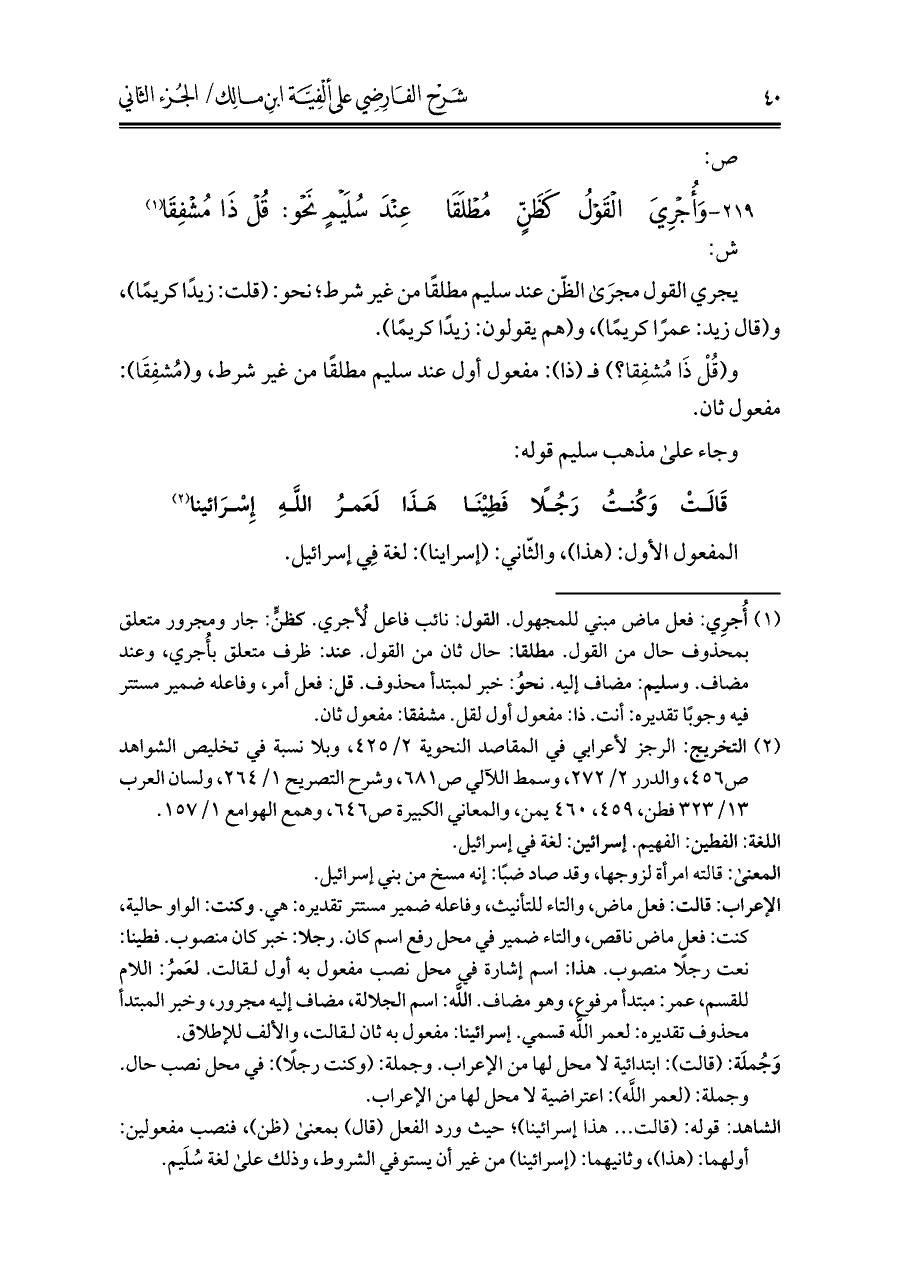 ٤٠ شَرْح الفَارِضِي على ألْفِيَّة ابنِ مالِك/ الجُزء الثاني
ص:
٢١٩- وَأُجْرِيَ القَوْلُ كَظَنٍّ مُطْلَقَا عِنْدَ سُلَيْمٍ نَحْوُ: قُلْ ذَا مُشْفِقَا(١)
ش:
يجري القول مجرَى الظّن عند سليم مطلقًا من غير شرط؛ نحو: (قلت: زيدًا كريمًا)،
و(قال زيد: عمرًا كريمًا)، و(هم يقولون: زيدًا كريمًا).
و(قُلْ ذَا مُشفِقا؟) فـ (ذا): مفعول أول عند سليم مطلقًا من غير شرط، و(مُشفِقَا):
مفعول ثان.
وجاء على مذهب سليم قوله:
قَالَـتْ وَكُنـتُ رَجُـلًا فَطِيْنَـا هَـذَا لَعَمـرُ اللَّـهِ إِسْـرَائينا(٢)
المفعول الأول: (هذا)، والثّاني: (إسراينا): لغة فِي إسرائيل.
(١) أُجرِي: فعل ماض مبني للمجهول. القول: نائب فاعل لأُجري. كظنٍّ: جار ومجرور متعلق
بمحذوف حال من القول. مطلقا: حال ثان من القول. عند: ظرف متعلق بأُجري، وعند
مضاف. وسليم: مضاف إليه. نحوُ: خبر لمبتدأ محذوف. قل: فعل أمر، وفاعله ضمير مستتر
فيه وجوبًا تقديره: أنت. ذا: مفعول أول لقل. مشفقا: مفعول ثان.
(٢) التخريج: الرجز لأعرابي في المقاصد النحوية ٢/ ٤٢٥، وبلا نسبة في تخليص الشواهد
ص٤٥٦، والدرر ٢/ ٢٧٢، وسمط اللآلي ص٦٨١، وشرح التصريح ١/ ٢٦٤، ولسان العرب
١٣/ ٣٢٣ فطن، ٤٥٩، ٤٦٠ يمن، والمعاني الكبيرة ص٦٤٦، وهمع الهوامع ١/ ١٥٧.
اللغة: الفطين: الفهيم. إسرائين: لغة في إسرائيل.
المعنى: قالته امرأة لزوجها، وقد صاد ضبًا: إنه مسخ من بني إسرائيل.
الإعراب: قالت: فعل ماض، والتاء للتأنيث، وفاعله ضمير مستتر تقديره: هي. وكنت: الواو حالية،
كنت: فعل ماض ناقص، والتاء ضمير في محل رفع اسم كان. رجلا: خبر كان منصوب. فطينا:
نعت رجلًا منصوب. هذا: اسم إشارة في محل نصب مفعول به أول لـقالت. لعَمرُ: اللام
للقسم، عمر: مبتدأ مرفوع، وهو مضاف. اللَّه: اسم الجلالة، مضاف إليه مجرور، وخبر المبتدأ
محذوف تقديره: لعمر اللَّه قسمي. إسرائينا: مفعول به ثان لـقالت، والألف للإطلاق.
وَجُملَة: (قالت): ابتدائية لا محل لها من الإعراب. وجملة: (وكنت رجلًا): في محل نصب حال.
وجملة: (لعمر اللَّه): اعتراضية لا محل لها من الإعراب.
الشاهد: قوله: (قالت... هذا إسرائينا)؛ حيث ورد الفعل (قال) بمعنى (ظن)، فنصب مفعولين:
أولهما: (هذا)، وثانيهما: (إسرائينا) من غير أن يستوفي الشروط، وذلك على لغة سُلَيم.